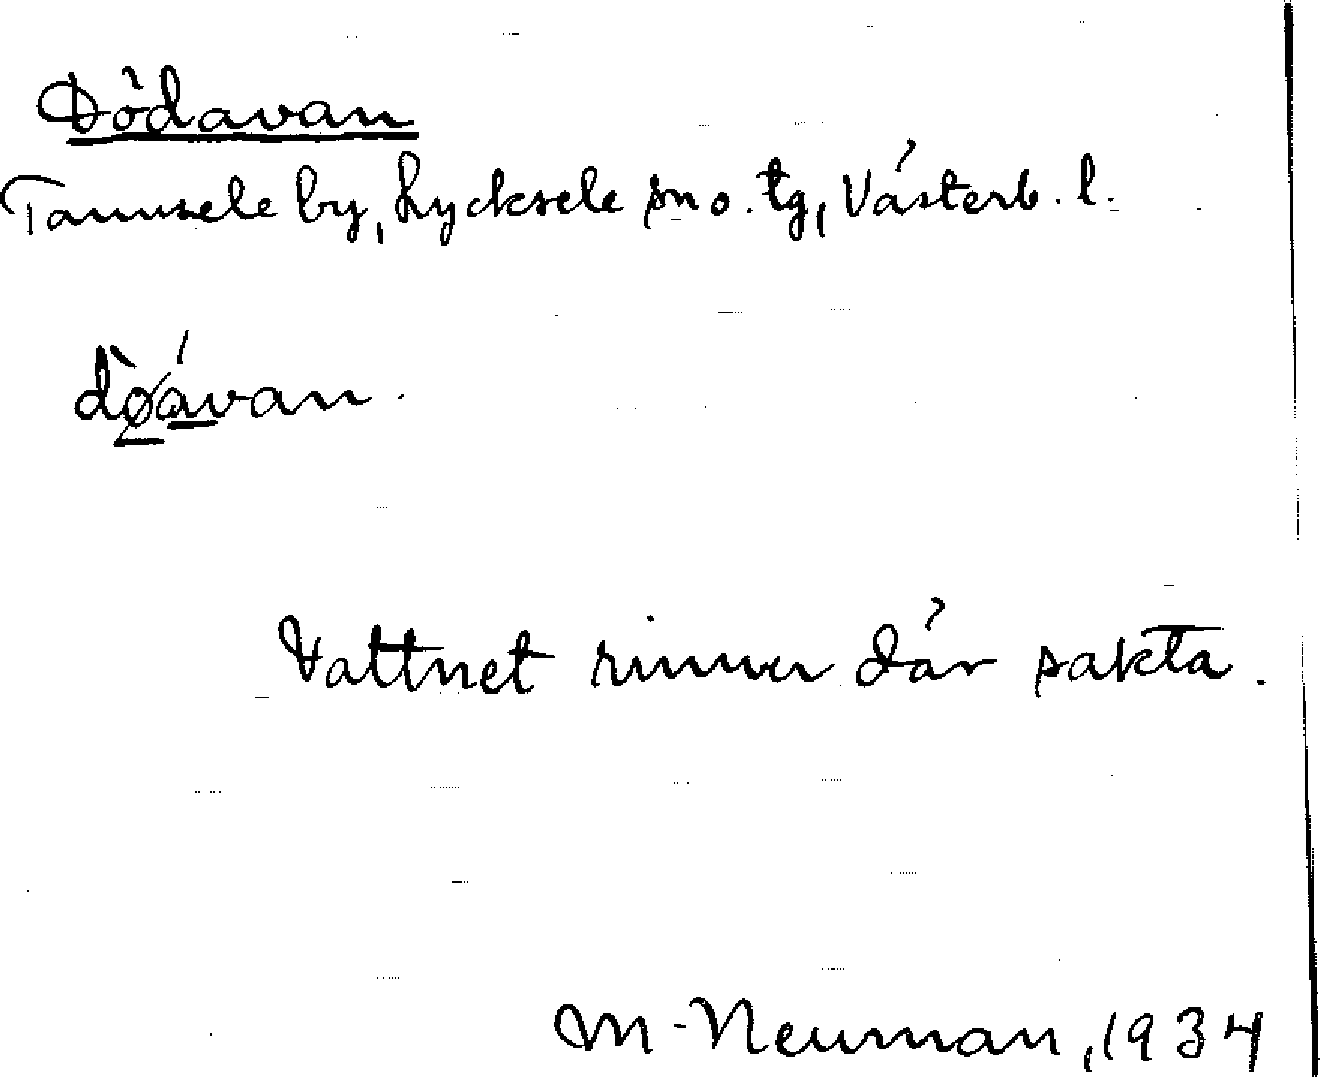 Dödavan
Tannsele by, Lycksele sn o. tg, Västerb. l.
dø̀ávan.
Vattnet rinner där sakta.
M. Neuman, 1934